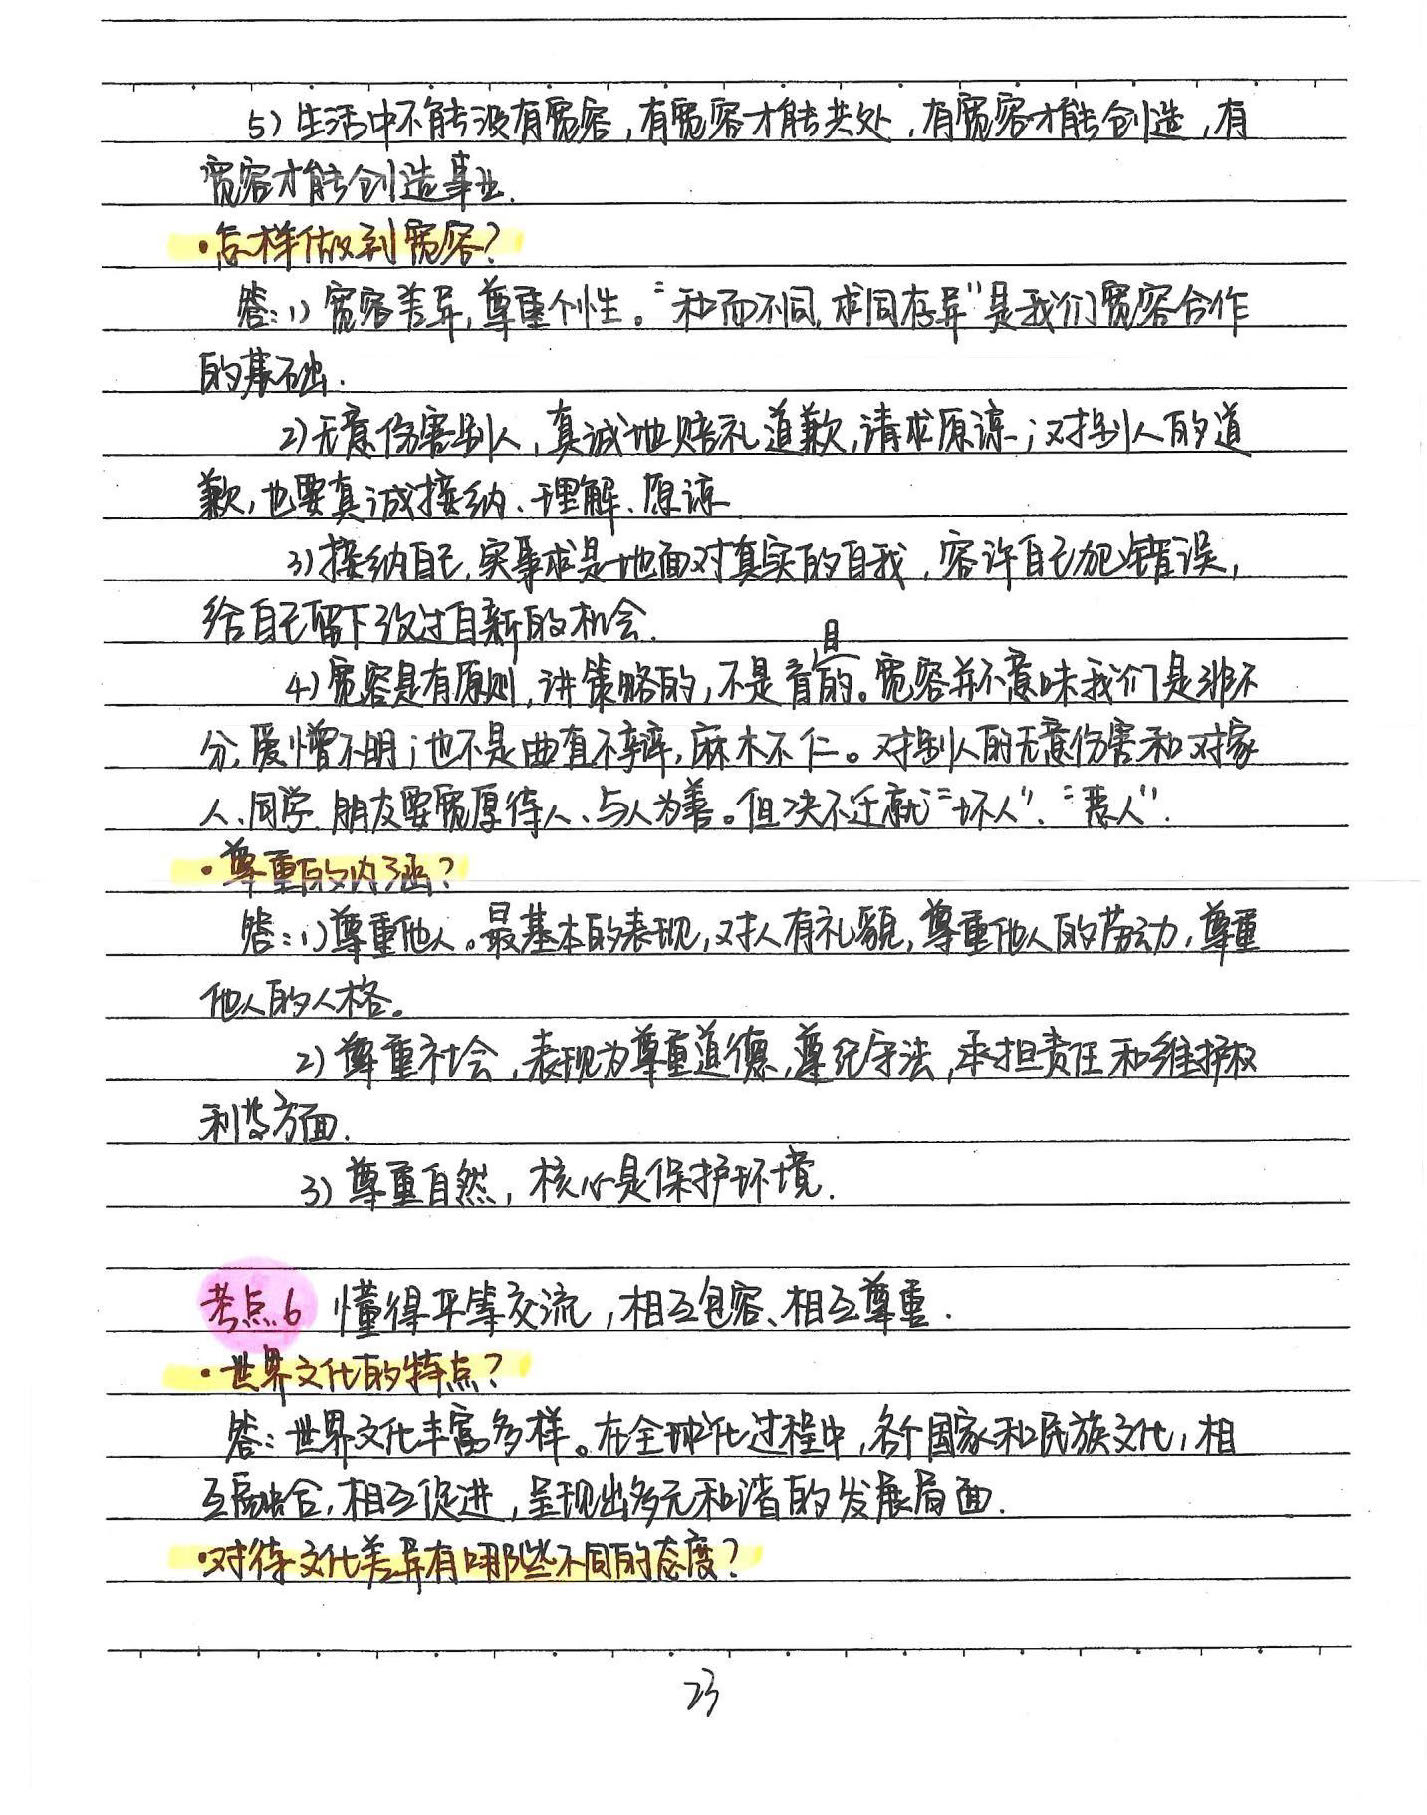 5) 生活中不能没有宽容,有宽容才能共处,有宽容才能创造,有
宽容才能创造事业.
·怎样做到宽容?
答:1) 宽容差异,尊重个性。“和而不同,求同存异”是我们宽容合作
的基础.
2)无意伤害别人,真诚地赔礼道歉,请求原谅;对别人的道
歉,也要真诚接纳、理解、原谅
3)接纳自己,实事求是地面对真实的自我,容许自己犯错误,
给自己留下改过自新的机会.
4)宽容是有原则,讲策略的,不是盲目的。宽容并不意味我们是非不
分,爱憎不明;也不是曲直不辨,麻木不仁。对别人的无意伤害和对家
人、同学、朋友要宽厚待人、与人为善。但决不迁就“坏人”、“恶人”.
·尊重的内涵?
答:1)尊重他人。最基本的表现,对人有礼貌,尊重他人的劳动,尊重
他人的人格。
2) 尊重社会,表现为尊重道德,遵纪守法,承担责任和维护权
利等方面.
3) 尊重自然,核心是保护环境.
考点6 懂得平等交流,相互包容、相互尊重.
·世界文化的特点?
答:世界文化丰富多样。在全球化过程中,各个国家和民族文化,相
互融合,相互促进,呈现出多元和谐的发展局面.
·对待文化差异有哪些不同的态度?
23